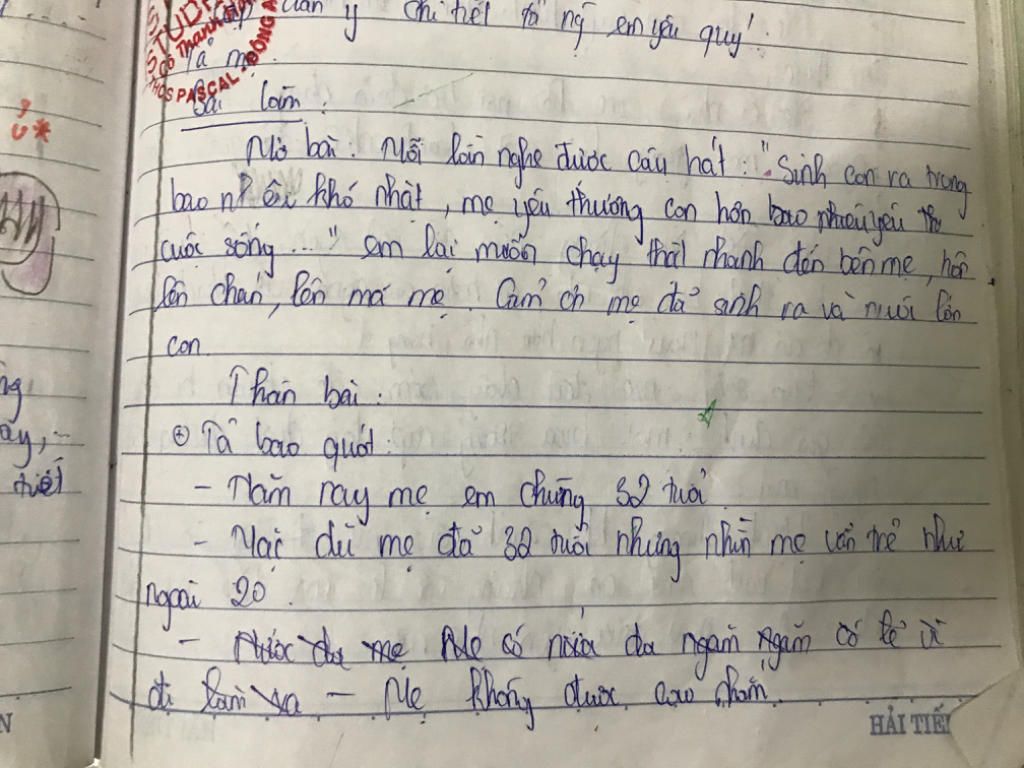 dàn ý chi tiết tả ng em yêu quý.
Tả mẹ.
Bài làm:
Mở bài: Mỗi lần nghe được câu hát: "Sinh con ra trong
bao khó nhất, mẹ yêu thương con hơn bao nhiêu yêu
cuộc sống ..." em lại muốn chạy thật nhanh đến bên mẹ, hôn
lên chán, lên má mẹ. Cảm ơn mẹ đã sinh ra và nuôi lớn
con.
Thân bài:
+ Tả bao quát:
- Năm nay mẹ em chừng 32 tuổi
- Mặc dù mẹ đã 32 tuổi nhưng nhìn mẹ vẫn trẻ như
ngoài 20.
- Nước da mẹ Mẹ có nước da ngăm ngăm có lẽ vì
đi làm xa - Mẹ không được cao
HẢI TIẾ
STUD
Cô Thanh
THCS PASCAL - ĐÔNG A
ng
ấy, ...
tiết
N